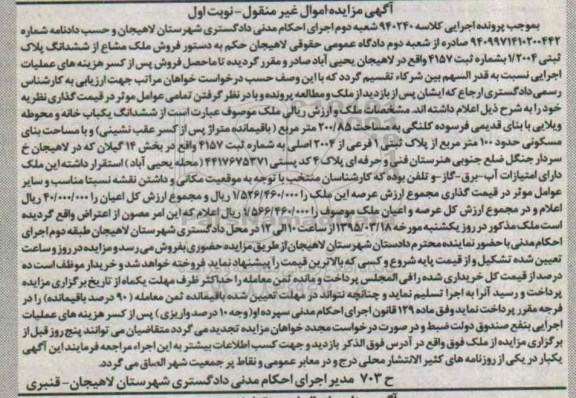 آگهی مزایده اموال غیر منقول - نوبت اول
بموجب پرونده اجرایی کلاسه ۹۴۰۲۴۰ شعبه دوم اجرای احکام مدنی دادگستری شهرستان لاهیجان و حسب دادنامه شماره
۹۴۰۹۹۷۱۴۱۰۲۰۰۴۴۲ صادره از شعبه دوم دادگاه عمومی حقوقی لاهیجان حکم به دستور فروش ملک مشاع از ششدانگ پلاک
ثبتی ۱/۲۰۰۴ بشماره ثبت ۴۱۵۷ واقع در لاهیجان یحیی آباد صادر و مقرر گردیده تا ماحصل فروش پس از کسر هزینه های عملیات
اجرایی نسبت به قدر السهم بین شرکاء تقسیم گردد که با این وصف حسب درخواست خواهان مراتب جهت ارزیابی به کارشناس
رسمی دادگستری ارجاع که ایشان پس از بازدید از ملک و مطالعه پرونده و با در نظر گرفتن تمامی عوامل موثر در قیمت گذاری نظریه
خود را به شرح ذیل اعلام داشته اند. مشخصات ملک و ارزش ریالی ملک موصوف عبارت است از ششدانگ یکباب خانه و محوطه
ویلایی با بنای قدیمی فرسوده کلنگی به مساحت ۲۰۰/۸۵ متر مربع (باقیمانده متراژ پس از کسر عقب نشینی) و با مساحت بنای
مسکونی حدود ۱۰۰ متر مربع از پلاک ثبتی ۱ فرعی از ۲۰۰۴ اصلی به شماره ثبت ۴۱۵۷ واقع در بخش ۱۴ گیلان که در لاهیجان خ
سردار جنگل ضلع جنوبی هنرستان فنی و حرفه ای پلاک ۴ کد پستی ۴۴۱۷۶۷۵۳۷۱ (محله یحیی آباد) استقرار داشته این ملک
دارای امتیازات آب - برق - گاز - و تلفن بوده که کارشناسان منتخب با توجه به موقعیت مکانی و داشتن نقشه نسبتا مناسب و سایر
عوامل موثر در قیمت گذاری مجموع ارزش عرصه این ملک را ۱/۵۲۶/۴۶۰/۰۰۰ ریال و مجموع ارزش کل اعیان را ۴۰/۰۰۰/۰۰۰ ریال
اعلام و در مجموع ارزش کل عرصه و اعیان ملک موصوف را ۱/۵۶۶/۴۶۰/۰۰۰ ریال اعلام که این امر مصون از اعتراض واقع گردیده
است ملک مذکور در روز یکشنبه مورخه ۱۳۹۵/۰۳/۱۸ از ساعت ۱۰ الی ۱۲ در محل دادگستری شهرستان لاهیجان طبقه دوم اجرای
احکام مدنی با حضور نماینده محترم دادستان شهرستان لاهیجان از طریق مزایده حضوری بفروش می رسد و مزایده در روز و ساعت
تعیین شده تشکیل و از قیمت پایه شروع و کسی که بالاترین قیمت را پیشنهاد نماید فروخته خواهد شد و خریدار موظف است ده
درصد از قیمت کل خریداری شده را فی المجلس پرداخت و مانده ثمن معامله را حداکثر ظرف مهلت یکماه از تاریخ برگزاری مزایده
پرداخت و رسید آنرا به اجرا تسلیم نماید و چنانچه نتواند در مهلت تعیین شده باقیمانده ثمن معامله (۹۰ درصد باقیمانده) را در
فرجه مقرر پرداخت نماید وفق ماده ۱۲۹ قانون اجرای احکام مدنی سپرده او (وجه ۱۰ درصد واریزی) پس از کسر هزینه های عملیات
اجرایی بنفع صندوق دولت ضبط و در صورت درخواست مجدد خواهان مزایده تجدید می گردد متقاضیان می توانند پنج روز قبل از
برگزاری مزایده از ملک فوق واقع در آدرس فوق الذکر بازدید و جهت کسب اطلاعات بیشتر به این اجراء مراجعه فرمایند این آگهی
یکبار در یکی از روزنامه های کثیر الانتشار محلی درج و در معابر عمومی و نقاط پر جمعیت شهر الصاق می گردد.
ح ۷۰۳ مدیر اجرای احکام مدنی دادگستری شهرستان لاهیجان - قنبری